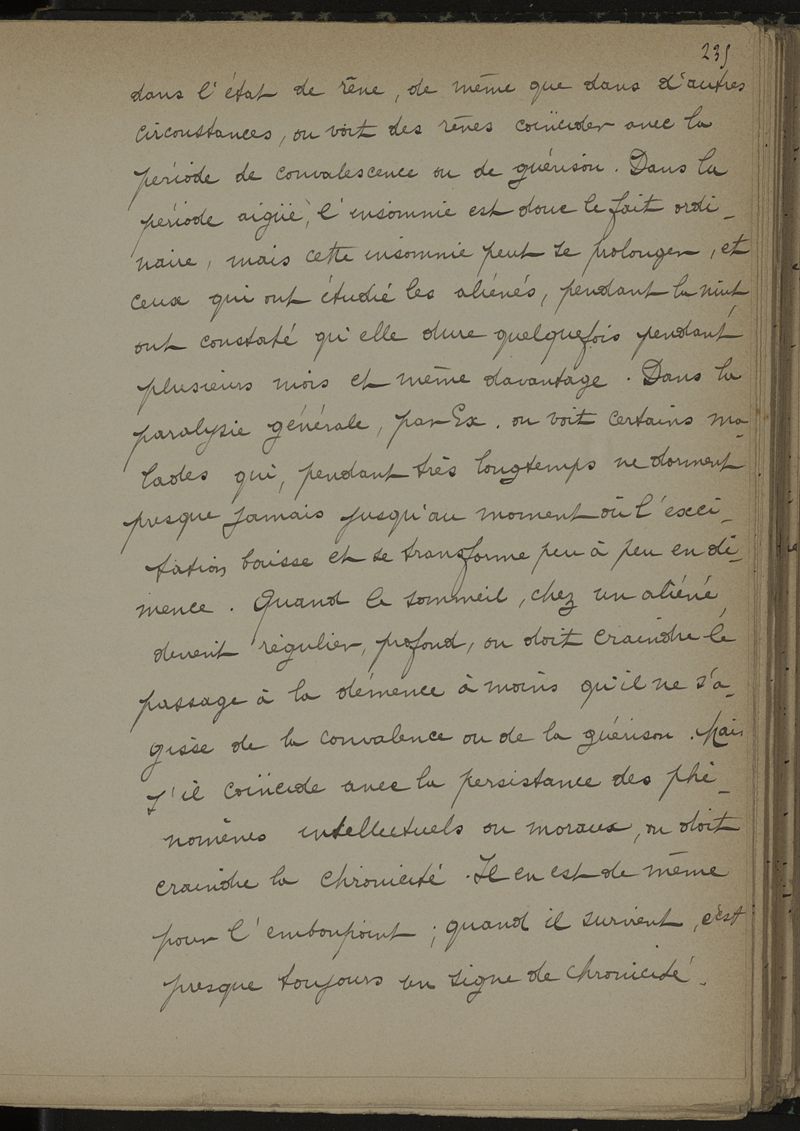 235
dans l'état de rêve, de même que dans d'autres
circonstances, on voit des rêves coïncider avec la
période de convalescence ou de guérison. Dans la
période aigüe, l'insomnie est donc le fait ordi-
naire, mais cette insomnie peut se prolonger, et
ceux qui ont étudié les aliénés, pendant la nuit,
ont constaté qu'elle dure quelquefois pendant
plusieurs mois et même davantage. Dans la
paralysie générale, par Ex. on voit certains ma-
lades qui, pendant très longtemps ne dorment
presque jamais jusqu'au moment où l'exci-
tation baisse et se transforme peu à peu en dé-
mence. Quand le sommeil, chez un aliéné,
devient régulier, profond, on doit craindre le
passage à la démence à moins qu'il ne s'a-
gisse de la convalence ou de la guérison. Mais
s'il coïncide avec la persistance des phé-
nomènes intellectuels ou moraux, on doit
craindre la chronicité. Il en est de même
pour l'embonpoint; quand il survient, c'est
presque toujours un signe de chronicité.